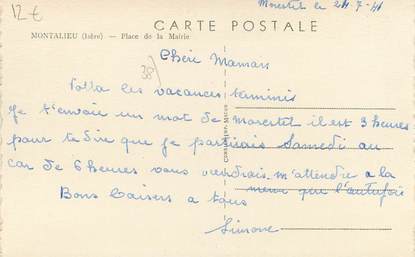 12 €
Morestel le 24-7-41
CARTE POSTALE
MONTALIEU (Isère) — Place de la Mairie
Chère Maman
38
Voila les vacances terminis
Je t'envoie un mot de morestel il est 3 heures
pour te dire que je partirais Samedi au
car de 6 heures vous viendrais m'attendre a la
meme que l'autrefois
Bons baisers a tous
Simone